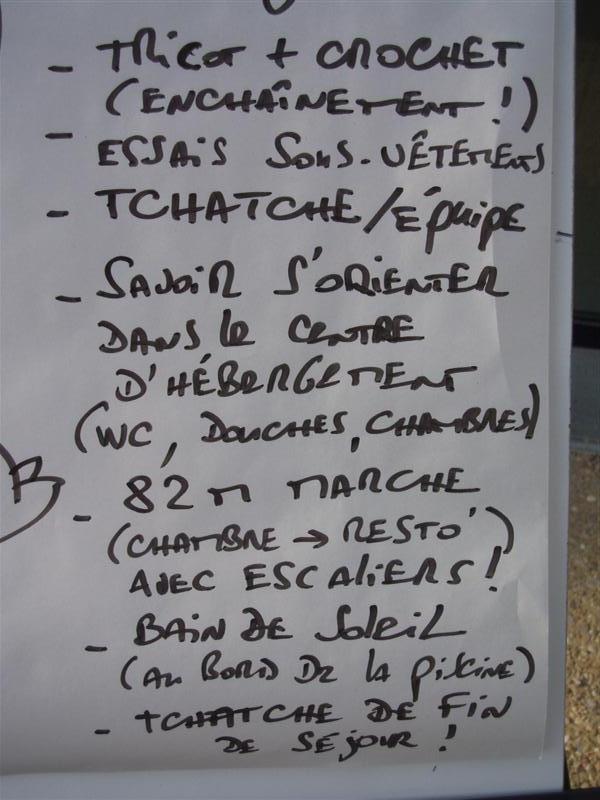 - TRICOT + CROCHET
(ENCHAÎNEMENT !)
- ESSAIS SOUS-VÊTEMENTS
- TCHATCHE/ÉQUIPE
- SAVOIR S'ORIENTER
DANS LE CENTRE
D'HÉBERGEMENT
(WC, DOUCHES, CHAMBRES)
- 82 M MARCHE
(CHAMBRE → RESTO')
AVEC ESCALIERS !
- BAIN DE SOLEIL
(AU BORD DE LA PISCINE)
- TCHATCHE DE FIN
DE SÉJOUR !